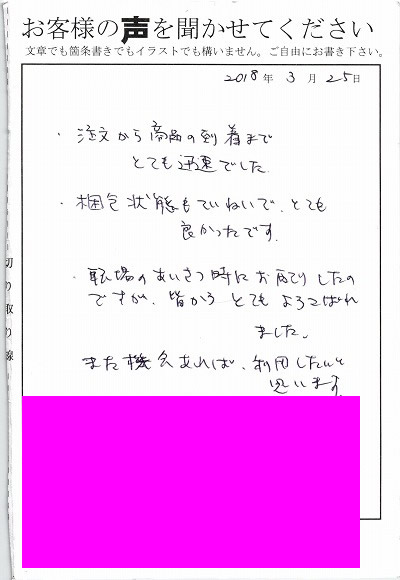 お客様の声を聞かせてください
文章でも箇条書きでもイラストでも構いません。ご自由にお書き下さい。
2018年 3月 25日
・注文から商品の到着まで
とても迅速でした
・梱包状態もていねいで、とても
良かったです。
・職場のあいさつ時にお配りしたの
ですが、皆からとてもよろこばれ
ました。
また機会あれば、利用したいと
思います。
切り取り線